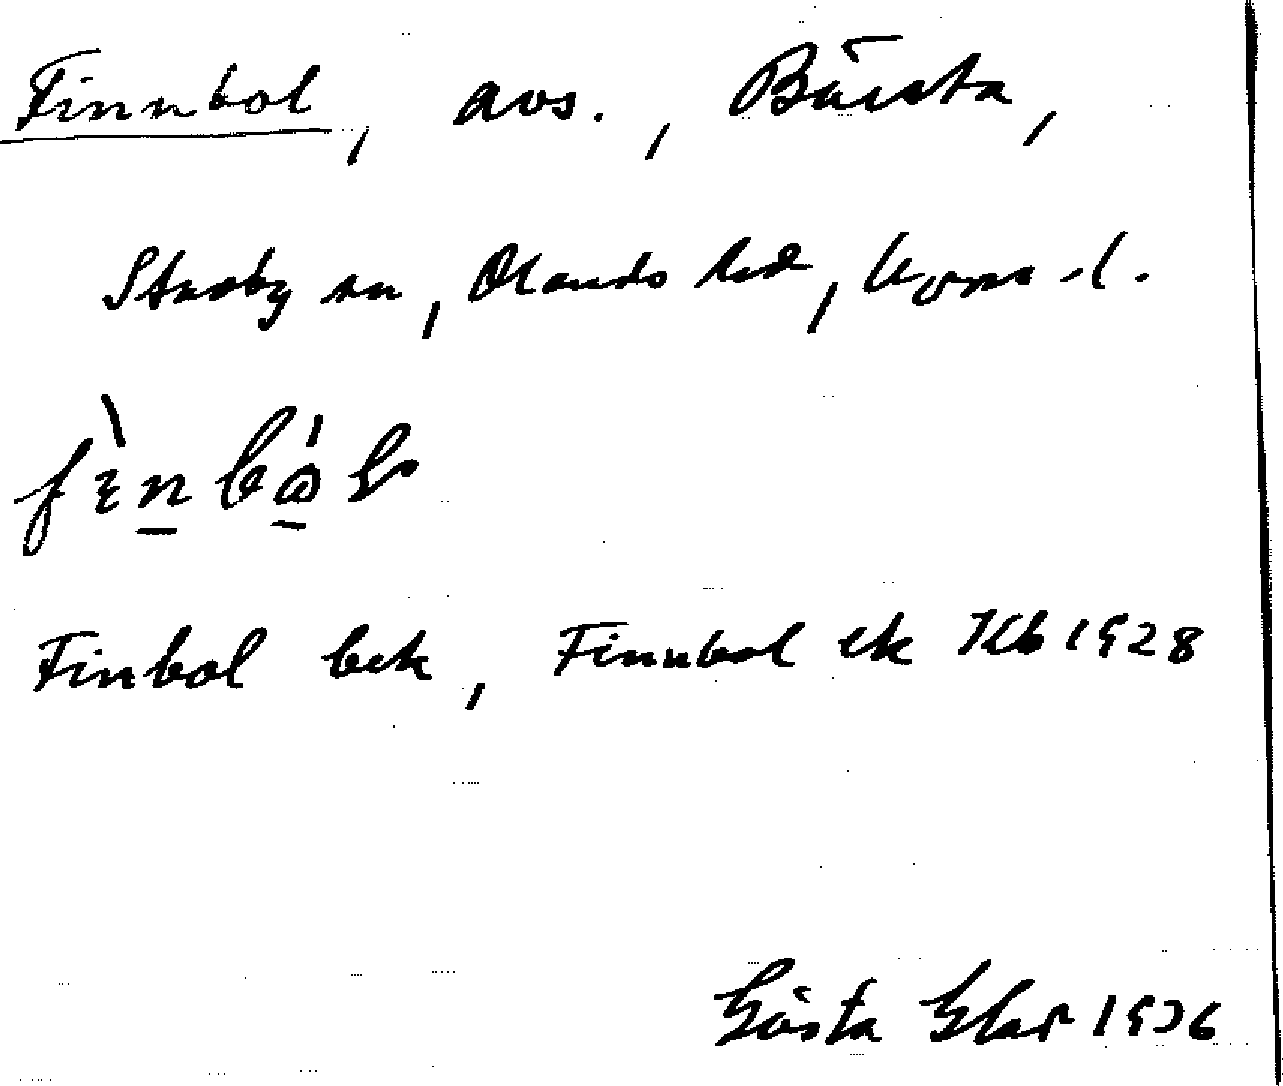 Finnbol, avs., Bärsta,
Stavby sn, Olands hd, Upps. l.
fìnbo̱l
Finbol bek, Finnbol ek Kb 1928
Gösta 1936